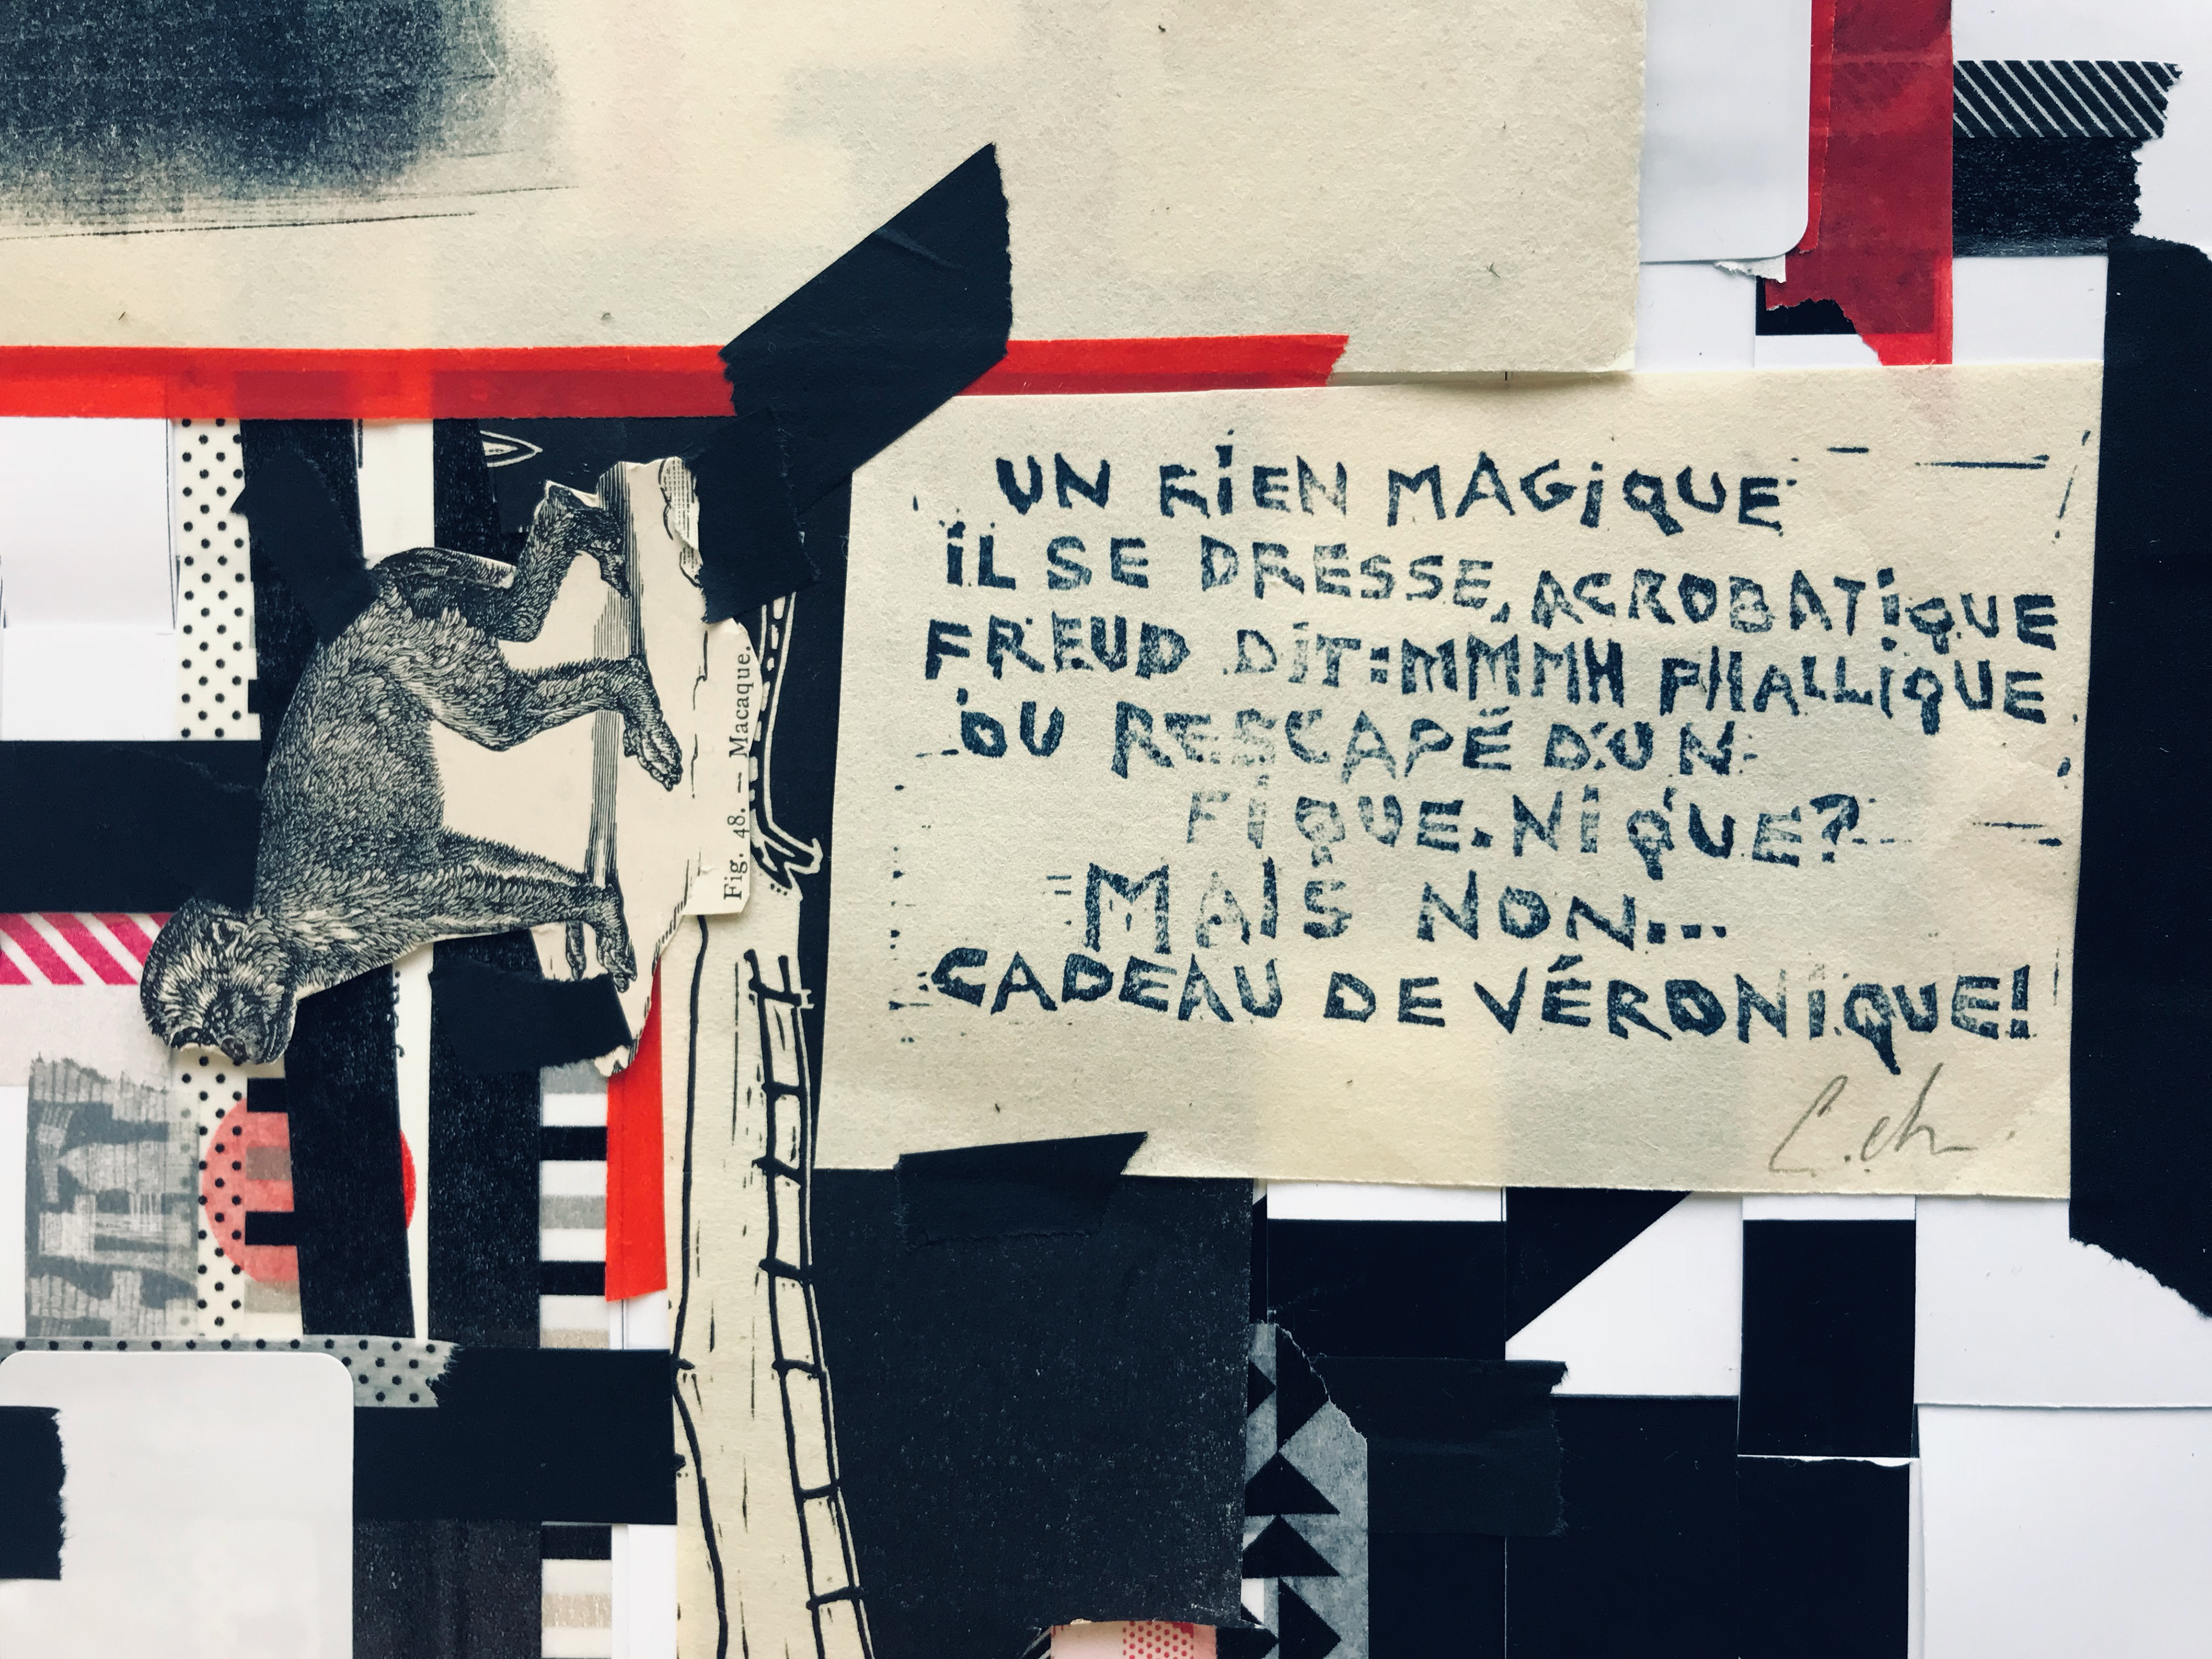 UN RiEN MAGiQUE
iL SE DRESSE, ACROBATiQUE
FREUD DiT: MMMH PHALLiQUE
OU RESCAPÉ D'UN
FiQUE.NiQUE?
MAIS NON...
CADEAU DE VÉRONiQUE!
Fig. 48. — Macaque.